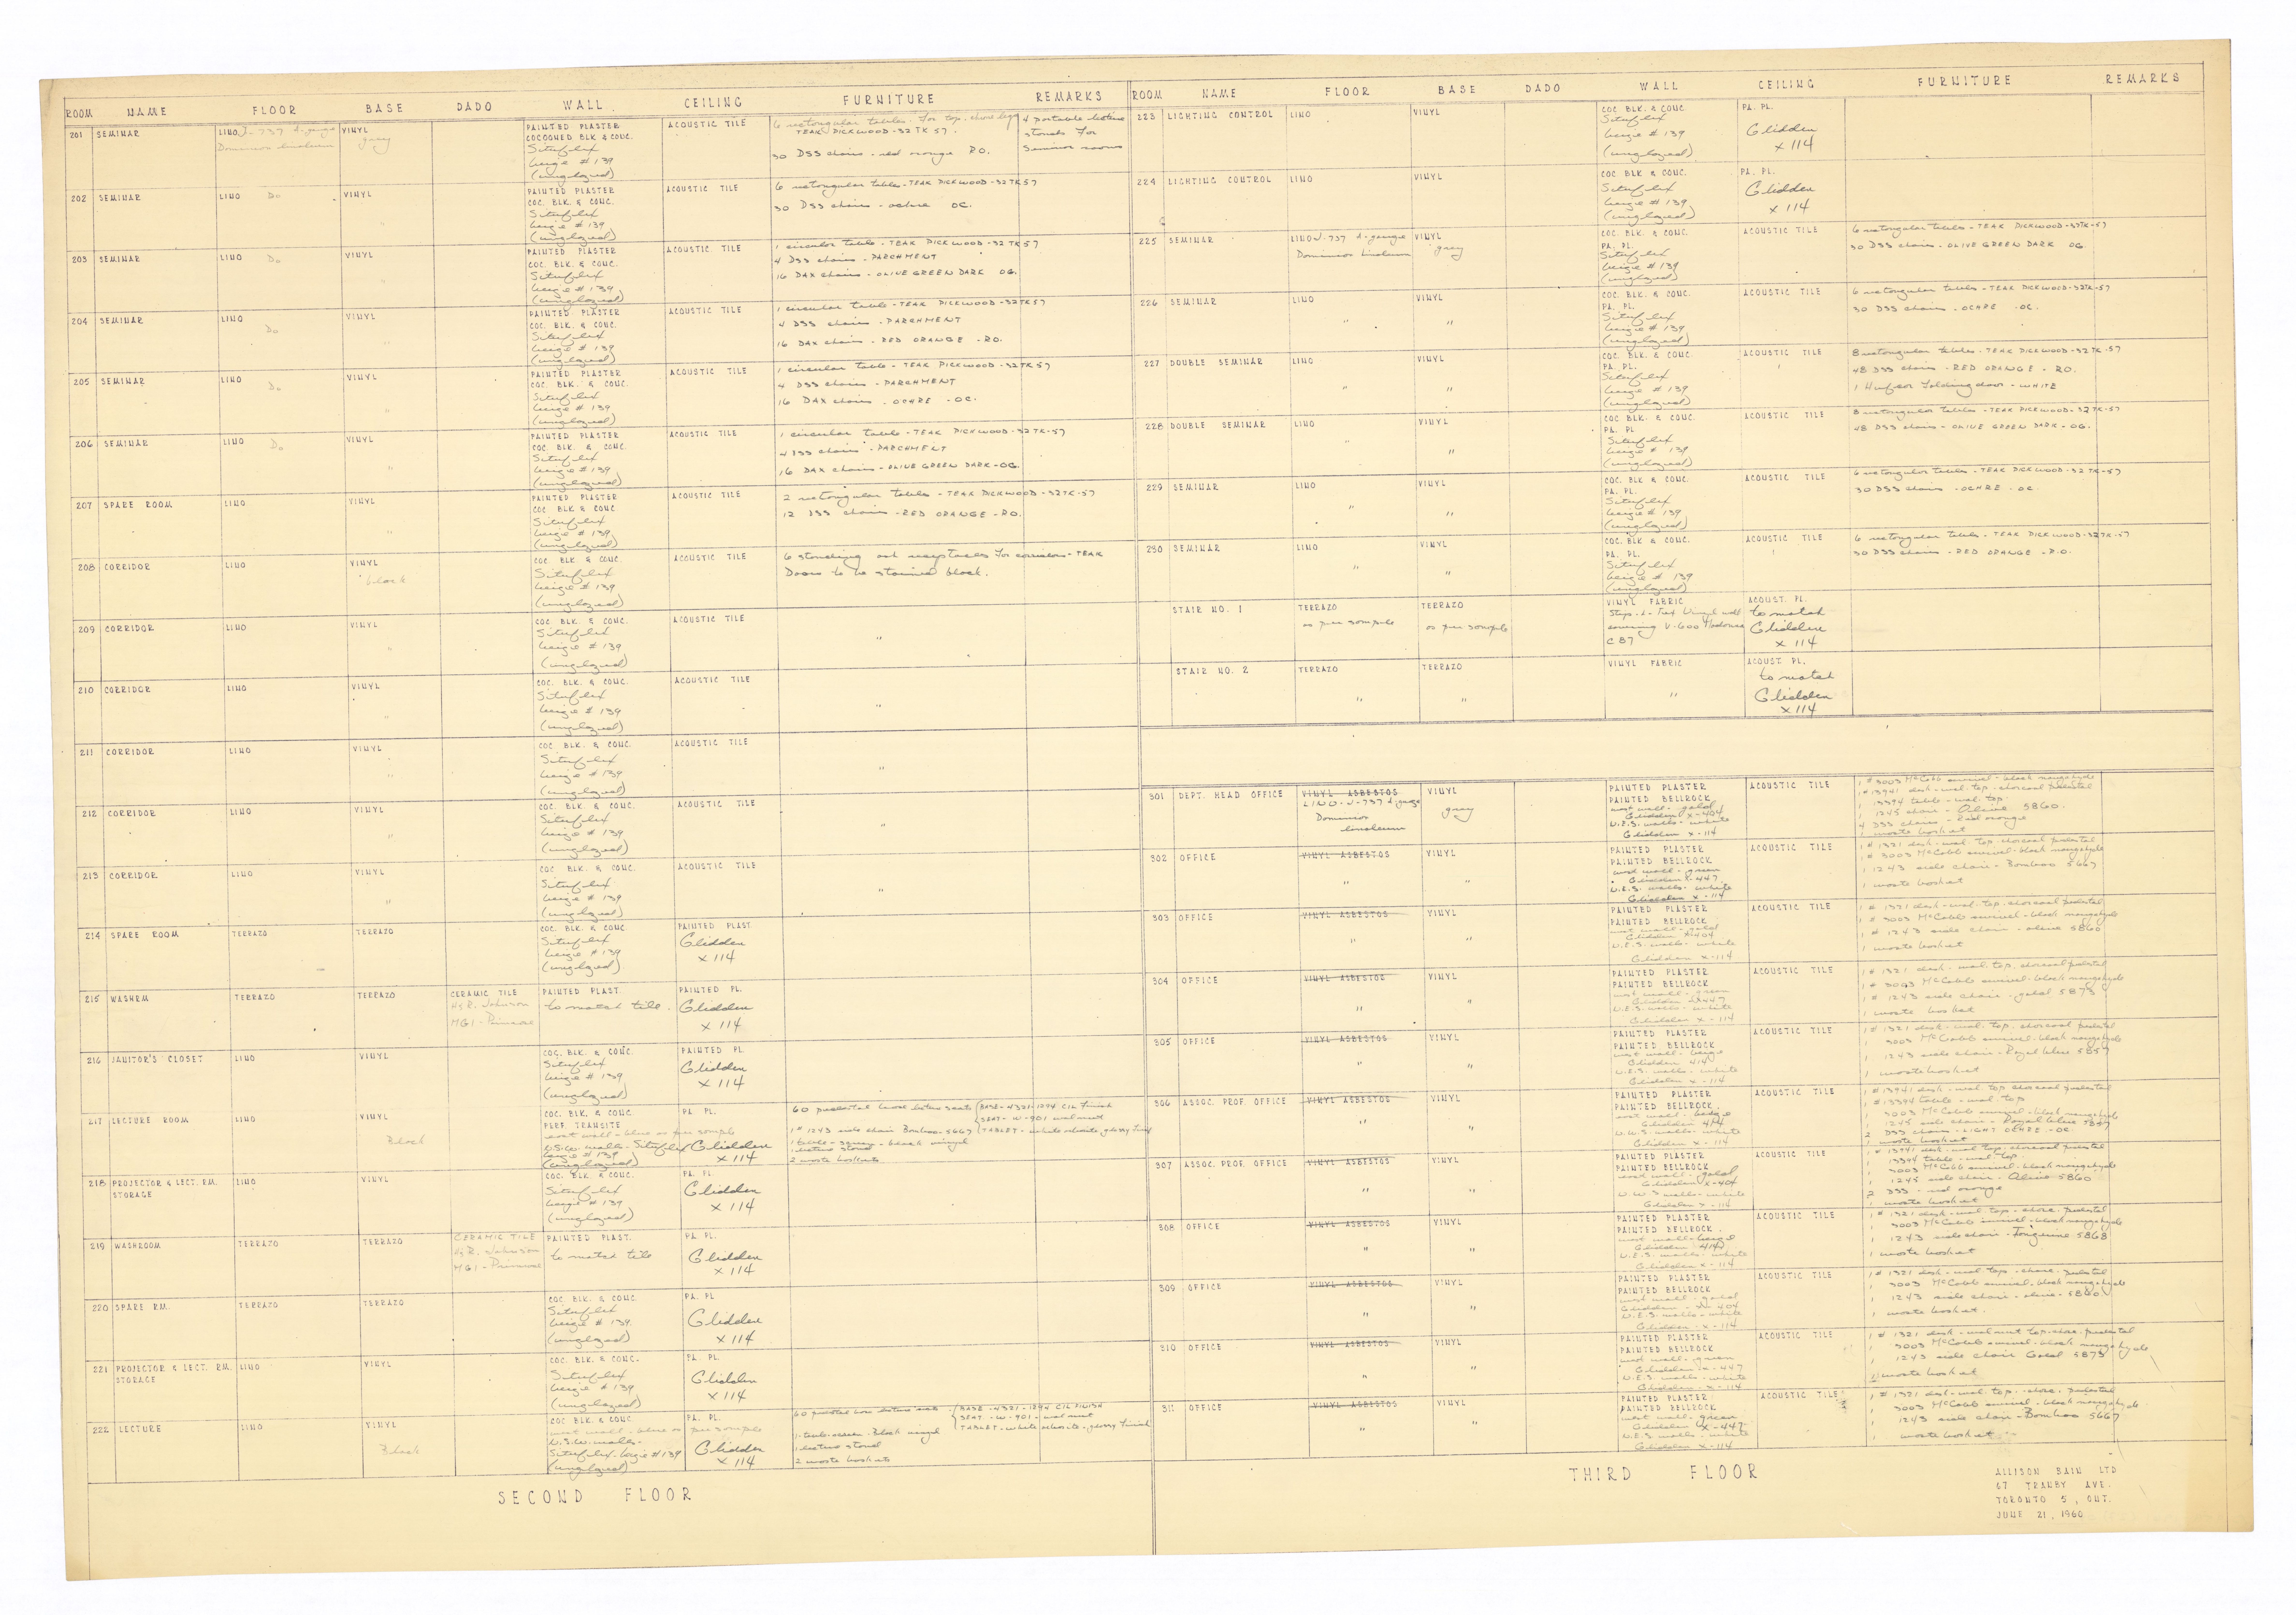 ROOM NAME FLOOR BASE DADO WALL CEILING FURNITURE REMARKS
201 SEMINAR
LINO J-737 A-gauge
Dominion linoleum
VINYL
gray
PAINTED PLASTER
COCOONED BLK & CONC.
Situflex
beige # 139
(unglazed)
ACOUSTIC TILE
6 rectangular tables. for top. chore legs
TEAK PICKWOOD-32 TK 57.
30 DSS chairs - red orange R.O.
4 portable lecture
stands for
Seminar rooms
202 SEMINAR
LINO Do
VINYL
"
PAINTED PLASTER
COC. BLK. & CONC.
Situflex
beige # 139
(unglazed)
ACOUSTIC TILE
6 rectangular tables - TEAK PICKWOOD-32TK57
30 DSS chairs - ochre OC.
203 SEMINAR
LINO Do
VINYL
PAINTED PLASTER
COC. BLK. & CONC.
Situflex
beige # 139
(unglazed)
ACOUSTIC TILE
1 circular table - TEAK PICKWOOD-32TK57
4 DSS chairs - PARCHMENT
16 DAX chairs - OLIVE GREEN DARK OG.
204 SEMINAR
LINO
Do
VINYL
"
PAINTED PLASTER
COC. BLK. & CONC.
Situflex
beige # 139
(unglazed)
ACOUSTIC TILE
1 circular table - TEAK PICKWOOD-32TK57
4 DSS chairs - PARCHMENT
16 DAX chairs - RED ORANGE - RO.
205 SEMINAR
LINO Do
VINYL
"
PAINTED PLASTER
COC. BLK. & CONC.
Situflex
beige # 139
(unglazed)
ACOUSTIC TILE
1 circular table - TEAK PICKWOOD-32TK57
4 DSS chairs - PARCHMENT
16 DAX chairs - OCHRE - OC.
206 SEMINAR
LINO Do
VINYL
"
PAINTED PLASTER
COC. BLK & CONC.
Situflex
beige # 139
(unglazed)
ACOUSTIC TILE
1 circular table - TEAK PICKWOOD-32TK-57
4 DSS chairs - PARCHMENT
16 DAX chairs - OLIVE GREEN DARK - OG.
207 SPARE ROOM
LINO
VINYL
"
PAINTED PLASTER
COC BLK & CONC.
Situflex
beige # 139
(unglazed)
ACOUSTIC TILE
2 rectangular tables - TEAK PICKWOOD-32TK-57
12 DSS chairs - RED ORANGE - RO.
208 CORRIDOR
LINO
VINYL
black
COC. BLK. & CONC.
Situflex
beige # 139
(unglazed)
ACOUSTIC TILE
6 standing ash receptacles for corridors - TEAK
Doors to be stained black.
209 CORRIDOR
LINO
VINYL
"
COC. BLK & CONC.
Situflex
beige # 139
(unglazed)
ACOUSTIC TILE
"
210 CORRIDOR
LINO
VINYL
"
COC. BLK & CONC.
Situflex
beige # 139
(unglazed)
ACOUSTIC TILE
"
211 CORRIDOR
LINO
VINYL
"
COC. BLK. & CONC.
Situflex
beige # 139
(unglazed)
ACOUSTIC TILE
"
212 CORRIDOR
LINO
VINYL
"
COC BLK. & CONC.
Situflex
beige # 139
(unglazed)
ACOUSTIC TILE
"
213 CORRIDOR
LINO
VINYL
"
COC. BLK. & CONC.
Situflex
beige # 139
(unglazed)
ACOUSTIC TILE
"
214 SPARE ROOM
TERRAZO
TERRAZO
COC. BLK. & CONC.
Situflex
beige # 139
(unglazed)
PAINTED PLAST.
Glidden
x 114
215 WASHRM
TERRAZO
TERRAZO
CERAMIC TILE
H & R. Johnson
MG1 - Primrose
PAINTED PLAST.
to match tile.
PAINTED PL.
Glidden
x 114
216 JANITOR'S CLOSET
LINO
VINYL
COC. BLK. & CONC.
Situflex
beige # 139
(unglazed)
PAINTED PL
Glidden
x 114
217 LECTURE ROOM
LINO
VINYL
Black
COC. BLK. & CONC.
PERF. TRANSITE
east wall - blue as per sample
N.S.W. walls - Situflex
beige # 139
(unglazed)
PA. PL.
Glidden
x 114
60 pedestal base lecture seats (BASE-4321-1294 CIL Finish
(SEAT - W-901 walnut
1 # 1243 side chair Bamboo - 5667 (TABLET - white arborite, glossy finish
1 table - black vinyl
1 lecture stand
2 waste baskets
218 PROJECTOR & LECT. RM.
STORAGE
LINO
VINYL
COC. BLK. & CONC.
Situflex
beige # 139
(unglazed)
PA. PL
Glidden
x 114
219 WASHROOM
TERRAZO
TERRAZO
CERAMIC TILE
H & R. Johnson
MG1 - Primrose
PAINTED PLAST.
to match tile
PA. PL.
Glidden
x 114
220 SPARE RM.
TERRAZO
TERRAZO
COC BLK. & CONC.
Situflex
beige # 139
(unglazed)
PA. PL
Glidden
x 114
221 PROJECTOR & LECT. RM.
STORAGE
LINO
VINYL
COC. BLK. & CONC.
Situflex
beige # 139
(unglazed)
PA. PL.
Glidden
x 114
222 LECTURE
LINO
VINYL
Black
COC BLK. & CONC
west wall - blue as per sample
N.S.W. walls -
Situflex - beige # 139
(unglazed)
PA. PL.
Glidden
x 114
60 pedestal base lecture seats - (BASE - 4321-1294 CIL FINISH
(SEAT - W-901 - walnut
TABLET - white arborite - glossy finish
1 table - Black vinyl
1 lecture stand
2 waste baskets
SECOND FLOOR
ROOM NAME FLOOR BASE DADO WALL CEILING FURNITURE REMARKS
223 LIGHTING CONTROL
LINO
VINYL
COC BLK. & CONC.
Situflex
beige # 139
(unglazed)
PA. PL.
Glidden
x 114
224 LIGHTING CONTROL
LINO
VINYL
COC BLK & CONC.
Situflex
beige # 139
(unglazed)
PA. PL.
Glidden
x 114
225 SEMINAR
LINO J-737 A-gauge
Dominion linoleum
VINYL
gray
COC. BLK. & CONC.
PA. PL.
Situflex
beige # 139
(unglazed)
ACOUSTIC TILE
6 rectangular tables - TEAK PICKWOOD-32TK-57
30 DSS chairs - OLIVE GREEN DARK OG.
226 SEMINAR
LINO
"
VINYL
"
COC. BLK. & CONC.
PA. PL.
Situflex
beige # 139
(unglazed)
ACOUSTIC TILE
6 rectangular tables - TEAK PICKWOOD-32TK-57
30 DSS chairs - OCHRE - OC.
227 DOUBLE SEMINAR
LINO
"
VINYL
"
COC. BLK. & CONC
PA. PL.
Situflex
beige # 139
(unglazed)
ACOUSTIC TILE
8 rectangular tables - TEAK PICKWOOD-32TK-57
48 DSS chairs - RED ORANGE - RO.
1 Hufcor folding door - WHITE
228 DOUBLE SEMINAR
LINO
"
VINYL
"
COC BLK. & CONC.
PA. PL
Situflex
beige # 139
(unglazed)
ACOUSTIC TILE
8 rectangular tables - TEAK PICKWOOD-32TK-57
48 DSS chairs - OLIVE GREEN DARK - OG.
229 SEMINAR
LINO
"
VINYL
"
COC BLK. & CONC.
PA. PL.
Situflex
beige # 139
(unglazed)
ACOUSTIC TILE
6 rectangular tables - TEAK PICKWOOD-32TK-57
30 DSS chairs - OCHRE - OC.
230 SEMINAR
LINO
"
VINYL
"
COC. BLK. & CONC.
PA. PL.
Situflex
beige # 139
(unglazed)
ACOUSTIC TILE
6 rectangular tables - TEAK PICKWOOD-32TK-57
30 DSS chairs - RED ORANGE - R.O.
STAIR NO. 1
TERRAZO
as per sample
TERRAZO
as per sample
VINYL FABRIC
Vinyl wall
covering V-600
C 87
ACOUST. PL.
to match
Glidden
x 114
STAIR NO. 2
TERRAZO
"
TERRAZO
"
VINYL FABRIC
"
ACOUST. PL.
to match
Glidden
x 114
301 DEPT. HEAD OFFICE
VINYL ASBESTOS
LINO-J-737 A gauge
Dominion
linoleum
VINYL
gray
PAINTED PLASTER
PAINTED BELLROCK
west wall - gold
Glidden x-404
N.E.S. walls - white
Glidden x-114
ACOUSTIC TILE
1 # 3003 McCobb swivel - black naugahyde
1 # 13941 desk - wal. top - charcoal pedestal
1 13394 table - wal. top
1 1245 chair - Olive 5860.
4 DSS chairs - Red orange
1 waste basket
302 OFFICE
VINYL ASBESTOS
"
VINYL
"
PAINTED PLASTER
PAINTED BELLROCK
west wall - green
Glidden x-447
N.E.S. walls - white
Glidden x-114
ACOUSTIC TILE
1 # 1321 desk - wal. top. charcoal pedestal
1 # 3003 McCobb swivel - black naugahyde
1 1243 side chair - Bamboo 5667
1 waste basket
303 OFFICE
VINYL ASBESTOS
"
VINYL
"
PAINTED PLASTER
PAINTED BELLROCK
west wall - gold
Glidden x-404
N.E.S. walls - white
Glidden x-114
ACOUSTIC TILE
1 # 1321 desk - wal. top. charcoal pedestal
1 # 3003 McCobb swivel - black naugahyde
1 # 1243 side chair - olive 5860
1 waste basket
304 OFFICE
VINYL ASBESTOS
"
VINYL
"
PAINTED PLASTER
PAINTED BELLROCK
west wall - green
Glidden x-447
N.E.S. walls - white
Glidden x-114
ACOUSTIC TILE
1 # 1321 desk - wal. top. charcoal pedestal
1 # 3003 McCobb swivel - black naugahyde
1 # 1243 side chair - gold 5873
1 waste basket
305 OFFICE
VINYL ASBESTOS
"
VINYL
"
PAINTED PLASTER
PAINTED BELLROCK
west wall - beige
Glidden 414
N.E.S. walls - white
Glidden x-114
ACOUSTIC TILE
1 # 1321 desk - wal. top. charcoal pedestal
1 3003 McCobb swivel - black naugahyde
1 1243 side chair - Royal blue 5857
1 waste basket
306 ASSOC. PROF. OFFICE
VINYL ASBESTOS
"
VINYL
"
PAINTED PLASTER
PAINTED BELLROCK.
east wall - beige
Glidden 414
N.W.S. walls - white
Glidden x-114
ACOUSTIC TILE
1 # 13941 desk - wal top charcoal pedestal
1 # 13394 table - wal. top
1 3003 McCobb swivel - black naugahyde
1 1245 side chair - Royal blue 5857
2 DSS chairs - LIGHT OCHRE - OC
1 waste basket
307 ASSOC. PROF. OFFICE
VINYL ASBESTOS
"
VINYL
"
PAINTED PLASTER
PAINTED BELLROCK
east wall - gold
Glidden x-404
N.W.S walls - white
Glidden x-114
ACOUSTIC TILE
1 # 13941 desk - wal. top. charcoal pedestal
1 13394 table - wal. top
1 3003 McCobb swivel - black naugahyde
1 1245 side chair - Olive 5860
2 DSS - red orange
1 waste basket
308 OFFICE
VINYL ASBESTOS
"
VINYL
"
PAINTED PLASTER
PAINTED BELLROCK.
west wall - beige
Glidden - 414
N.E.S. walls - white
Glidden x-114
ACOUSTIC TILE
1 # 1321 desk - wal. top - charc. pedestal
1 3003 McCobb swivel - black naugahyde
1 1243 side chair - Tangerine 5868
1 waste basket
309 OFFICE
VINYL ASBESTOS
"
VINYL
"
PAINTED PLASTER
PAINTED BELLROCK
west wall - gold
Glidden - x-404
N.E.S. walls - white
Glidden - x-114
ACOUSTIC TILE
1 # 1321 desk - wal. top - charc. pedestal
1 3003 McCobb swivel - black naugahyde
1 1243 side chair - olive - 5860
1 waste basket.
310 OFFICE
VINYL ASBESTOS
"
VINYL
"
PAINTED PLASTER
PAINTED BELLROCK
west wall - green
Glidden - x-447
N.E.S. walls - white
Glidden - x-114
ACOUSTIC TILE
1 # 1321 desk - walnut top - charc. pedestal
1 3003 McCobb swivel - black naugahyde
1 1243 side chair Gold 5873
1 waste basket
311 OFFICE
VINYL ASBESTOS
"
VINYL
"
PAINTED PLASTER
PAINTED BELLROCK
west wall - green
Glidden x-447
N.E.S walls - white
Glidden x-114
ACOUSTIC TILE
1 # 1321 desk - wal. top. - charc. pedestal
1 3003 McCobb swivel - black naugahyde
1 1243 side chair - Bamboo 5667
1 waste basket
THIRD FLOOR
ALLISON BAIN LTD
67 TRANBY AVE.
TORONTO 5, ONT.
JUNE 21, 1960